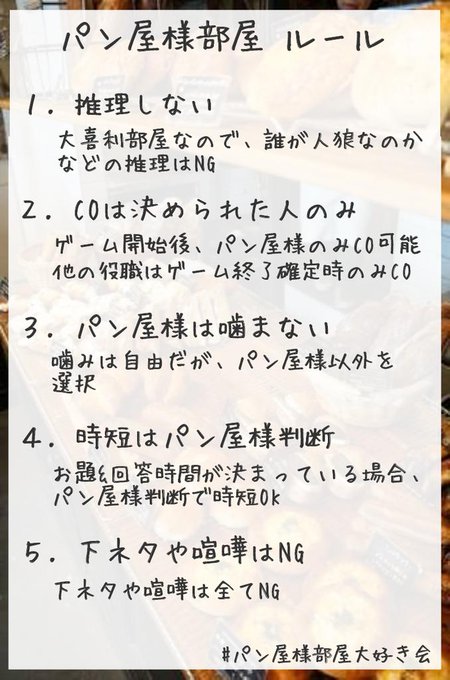 パン屋様部屋 ルール
1. 推理しない
大喜利部屋なので、誰が人狼なのか
などの推理はNG
2. COは決められた人のみ
ゲーム開始後、パン屋様のみCO可能
他の役職はゲーム終了確定時のみCO
3. パン屋様は噛まない
噛みは自由だが、パン屋様以外を
選択
4. 時短はパン屋様判断
お題&回答時間が決まっている場合、
パン屋様判断で時短OK
5. 下ネタや喧嘩はNG
下ネタや喧嘩は全てNG
#パン屋様部屋大好き会